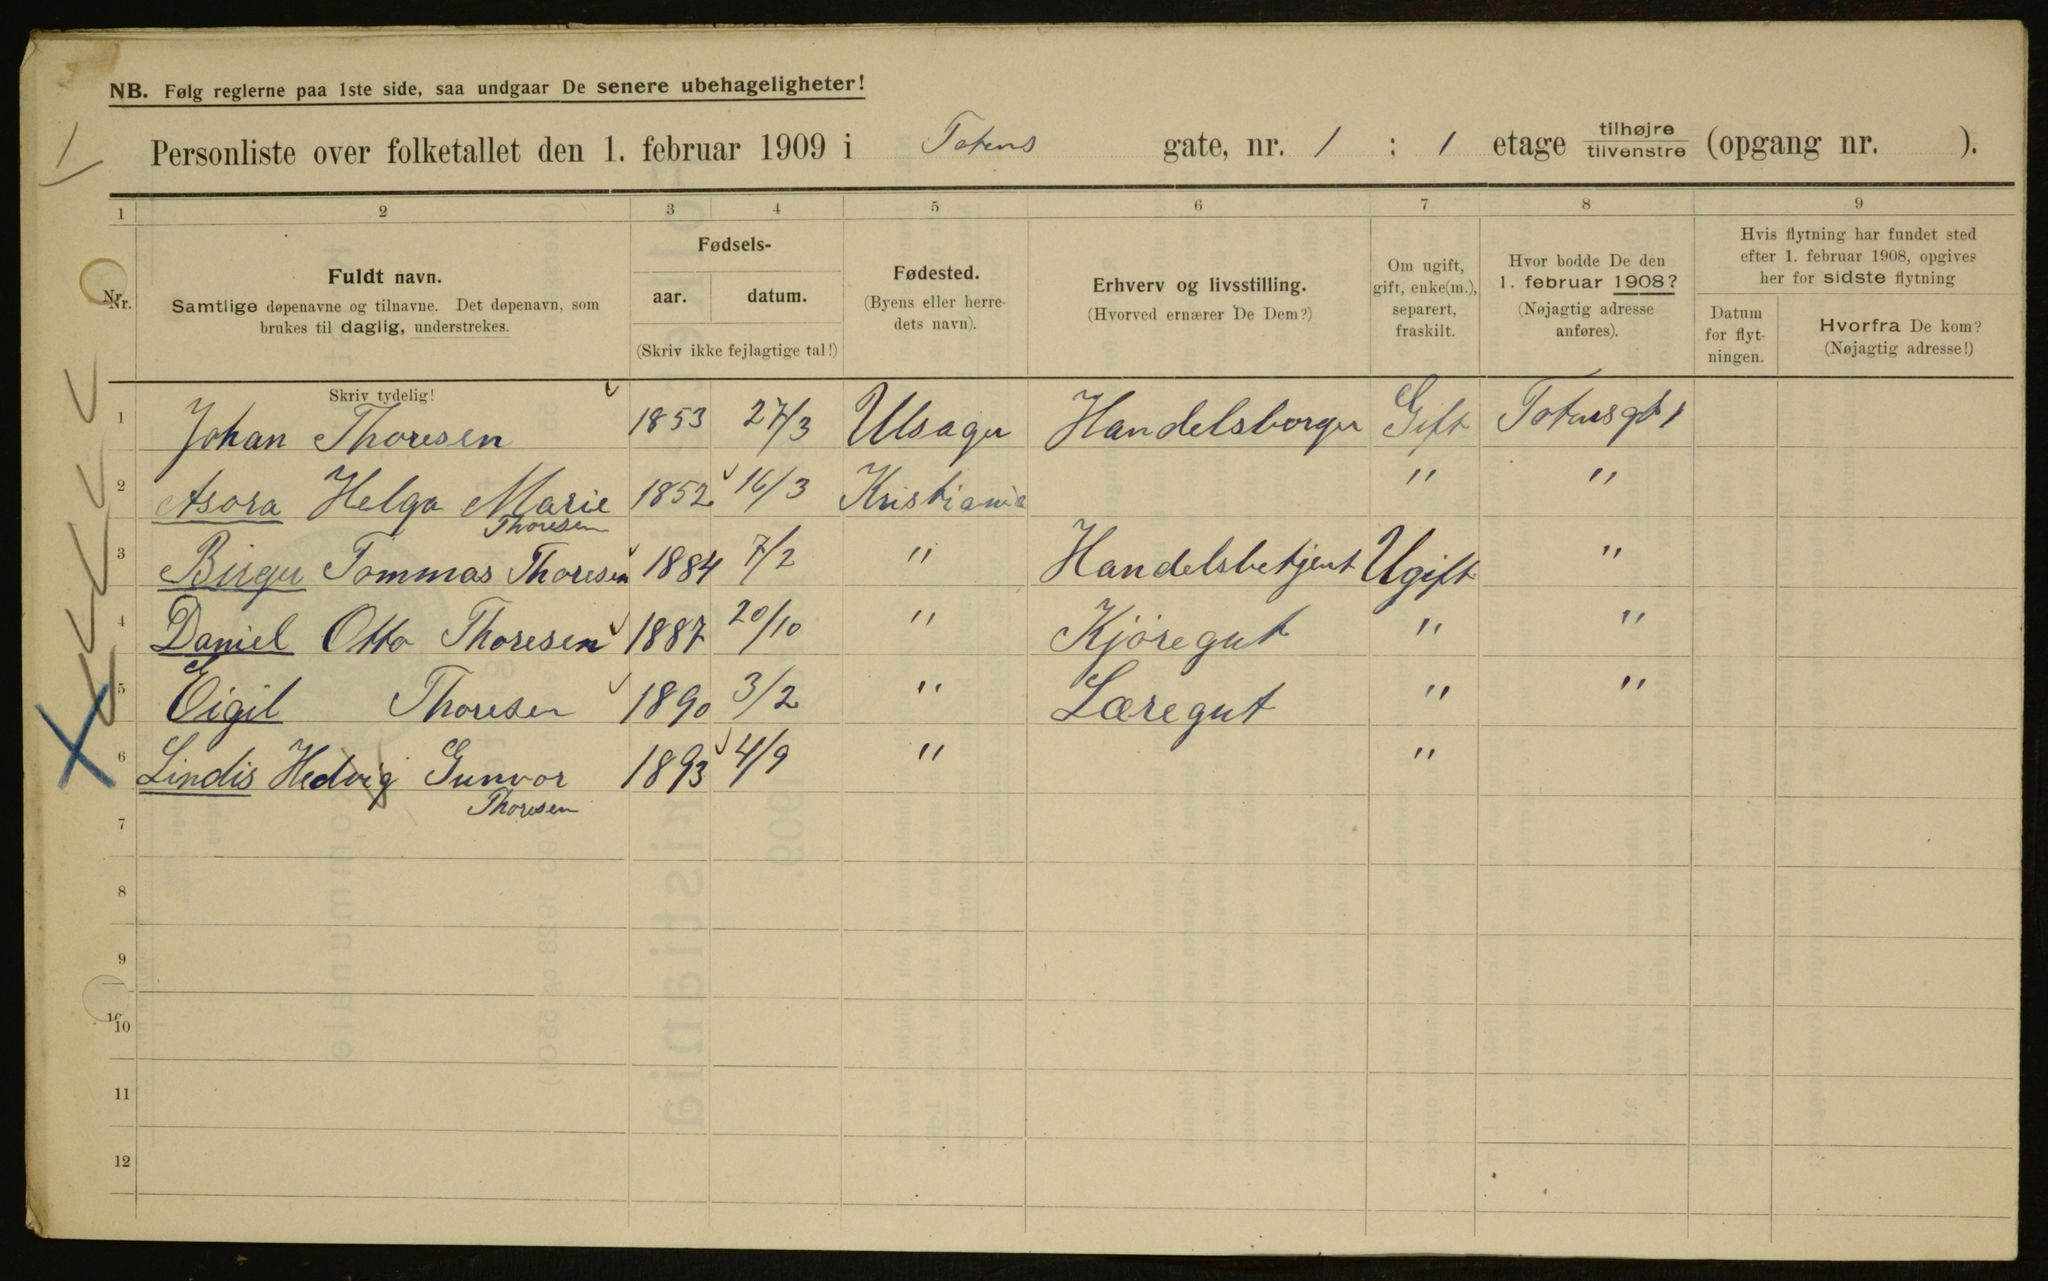 NB. Følg reglerne paa 1ste side, saa undgaar De senere ubehageligheter!
1
Personliste over folketallet den 1. februar 1909 i Totens gate, nr. 1 : 1 etage tilhøjre/tilvenstre (opgang nr. ).
1 2 3 4 5 6 7 8 9
Nr.
Fuldt navn.
Samtlige døpenavne og tilnavne. Det døpenavn, som
brukes til daglig, understrekes.
Fødsels-
aar. datum.
(Skriv ikke fejlagtige tal!)
Fødested.
(Byens eller herre-
dets navn).
Erhverv og livsstilling.
(Hvorved ernærer De Dem?)
Om ugift,
gift, enke(m.),
separert,
fraskilt.
Hvor bodde De den
1. februar 1908?
(Nøjagtig adresse
anføres).
Hvis flytning har fundet sted
efter 1. februar 1908, opgives
her for sidste flytning
Datum
for flyt-
ningen.
Hvorfra De kom?
(Nøjagtig adresse!)
Skriv tydelig!
1 Johan Thoresen 1853 27/3 Ulsager Handelsborger Gift Totensgt 1
2 Asora Helga Marie 1852 16/3 Kristiania " "
Thoresen
3 Birger Tommas Thoresen 1884 7/2 " Handelsbetjent Ugift "
4 Daniel Otto Thoresen 1887 20/10 " Kjøregut " "
5 Eigil Thoresen 1890 3/2 " Læregut " "
6 Lindis Hedvig Gunvor 1893 4/9 " "
Thoresen
7
8
9
10
11
12